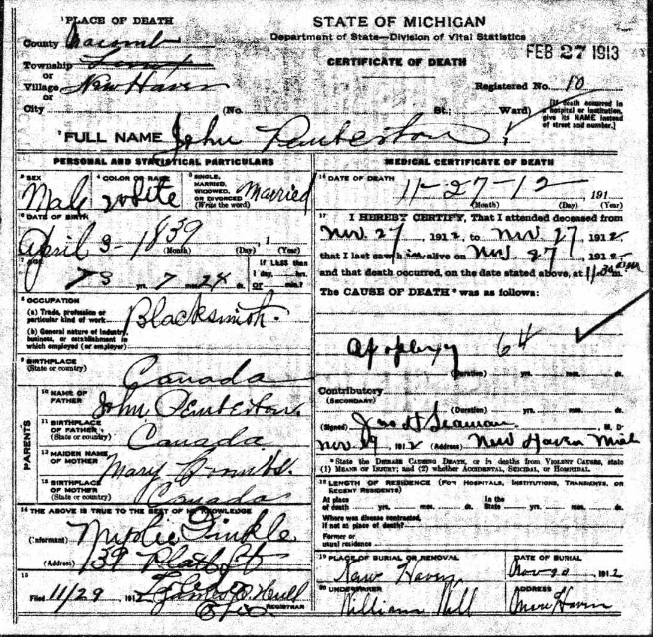 PLACE OF DEATH
STATE OF MICHIGAN
Department of State—Division of Vital Statistics
County Macomb
FEB 27 1913
CERTIFICATE OF DEATH
Township Lenox
or
Village New Haven
or
Registered No. 10
City (No. St.; Ward)
[If death occurred in a hospital or institution, give its NAME instead of street and number.]
FULL NAME John Pemberton
PERSONAL AND STATISTICAL PARTICULARS
SEX Male
COLOR OR RACE White
SINGLE, MARRIED, WIDOWED, OR DIVORCED (Write the word) Married
DATE OF BIRTH
April 3 - 1839
(Month) (Day) (Year)
AGE 73 yrs. 7 mos. 24 ds.
If LESS than 1 day, hrs. or min.?
OCCUPATION
(a) Trade, profession or particular kind of work
Blacksmith
(b) General nature of industry, business, or establishment in which employed (or employer)
BIRTHPLACE
(State or country) Canada
PARENTS
NAME OF FATHER John Pemberton
BIRTHPLACE OF FATHER
(State or country) Canada
MAIDEN NAME OF MOTHER Mary
BIRTHPLACE OF MOTHER
(State or country) Canada
THE ABOVE IS TRUE TO THE BEST OF MY KNOWLEDGE
(Informant)
(Address) 139
Filed 11/29 191
REGISTRAR
MEDICAL CERTIFICATE OF DEATH
DATE OF DEATH
11-27-12 191
(Month) (Day) (Year)
I HEREBY CERTIFY, That I attended deceased from
Nov 27, 1912, to Nov 27, 1912,
that I last saw him alive on Nov 27, 191
and that death occurred, on the date stated above, at
The CAUSE OF DEATH* was as follows:
Apoplexy 64
(Duration) yrs. mos. ds.
Contributory
(SECONDARY)
(Duration) yrs. mos. ds.
(Signed) Seaman, M. D.
1912 (Address) New Haven Mich
*State the DISEASE CAUSING DEATH, or in deaths from VIOLENT CAUSES, state
(1) MEANS OF INJURY; and (2) whether ACCIDENTAL, SUICIDAL, or HOMICIDAL.
LENGTH OF RESIDENCE (FOR HOSPITALS, INSTITUTIONS, TRANSIENTS, OR RECENT RESIDENTS)
At place of death yrs. mos. ds. In the State yrs. mos. ds.
Where was disease contracted, if not at place of death?
Former or usual residence
PLACE OF BURIAL OR REMOVAL
DATE OF BURIAL
New Haven
Nov 30, 1912
UNDERTAKER
ADDRESS
William
New Haven